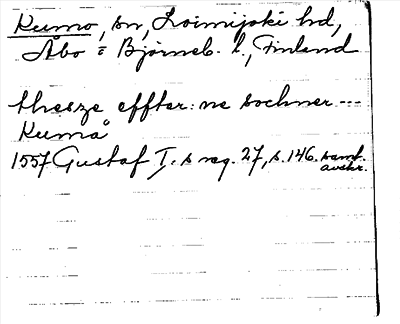 Kumo, sn, Loimijoki hd,
Åbo o Björneb. l., Finland
thesze effter: ne sochner ---
Kumå
1557 Gustaf I:s reg. 27, s. 146. samt.
avskr.